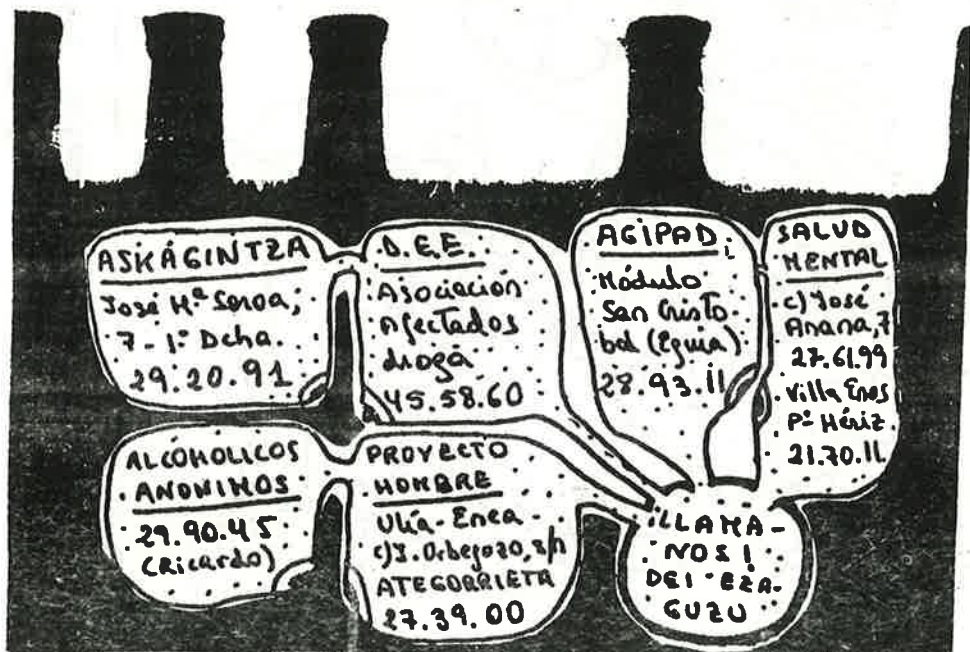 ASKAGINTZA
José Mª Soroa,
7-1º Dcha.
29.20.91
D.E.E.
Asociación
Afectados
droga
45.58.60
AGIPAD
Módulo
San Cristo-
bal (Eguia)
28.93.11
SALUD
MENTAL
c) José
Arana, 7
27.61.99
Villa Enos
Pº Hériz
21.70.11
ALCOHOLICOS
ANONIMOS
29.90.45
(Ricardo)
PROYECTO
HOMBRE
Ulía-Enea
c) J. Orbegozo, s/n
ATEGORRIETA
27.39.00
¡LLAMA-
NOS!
DEI EZA-
GUZU